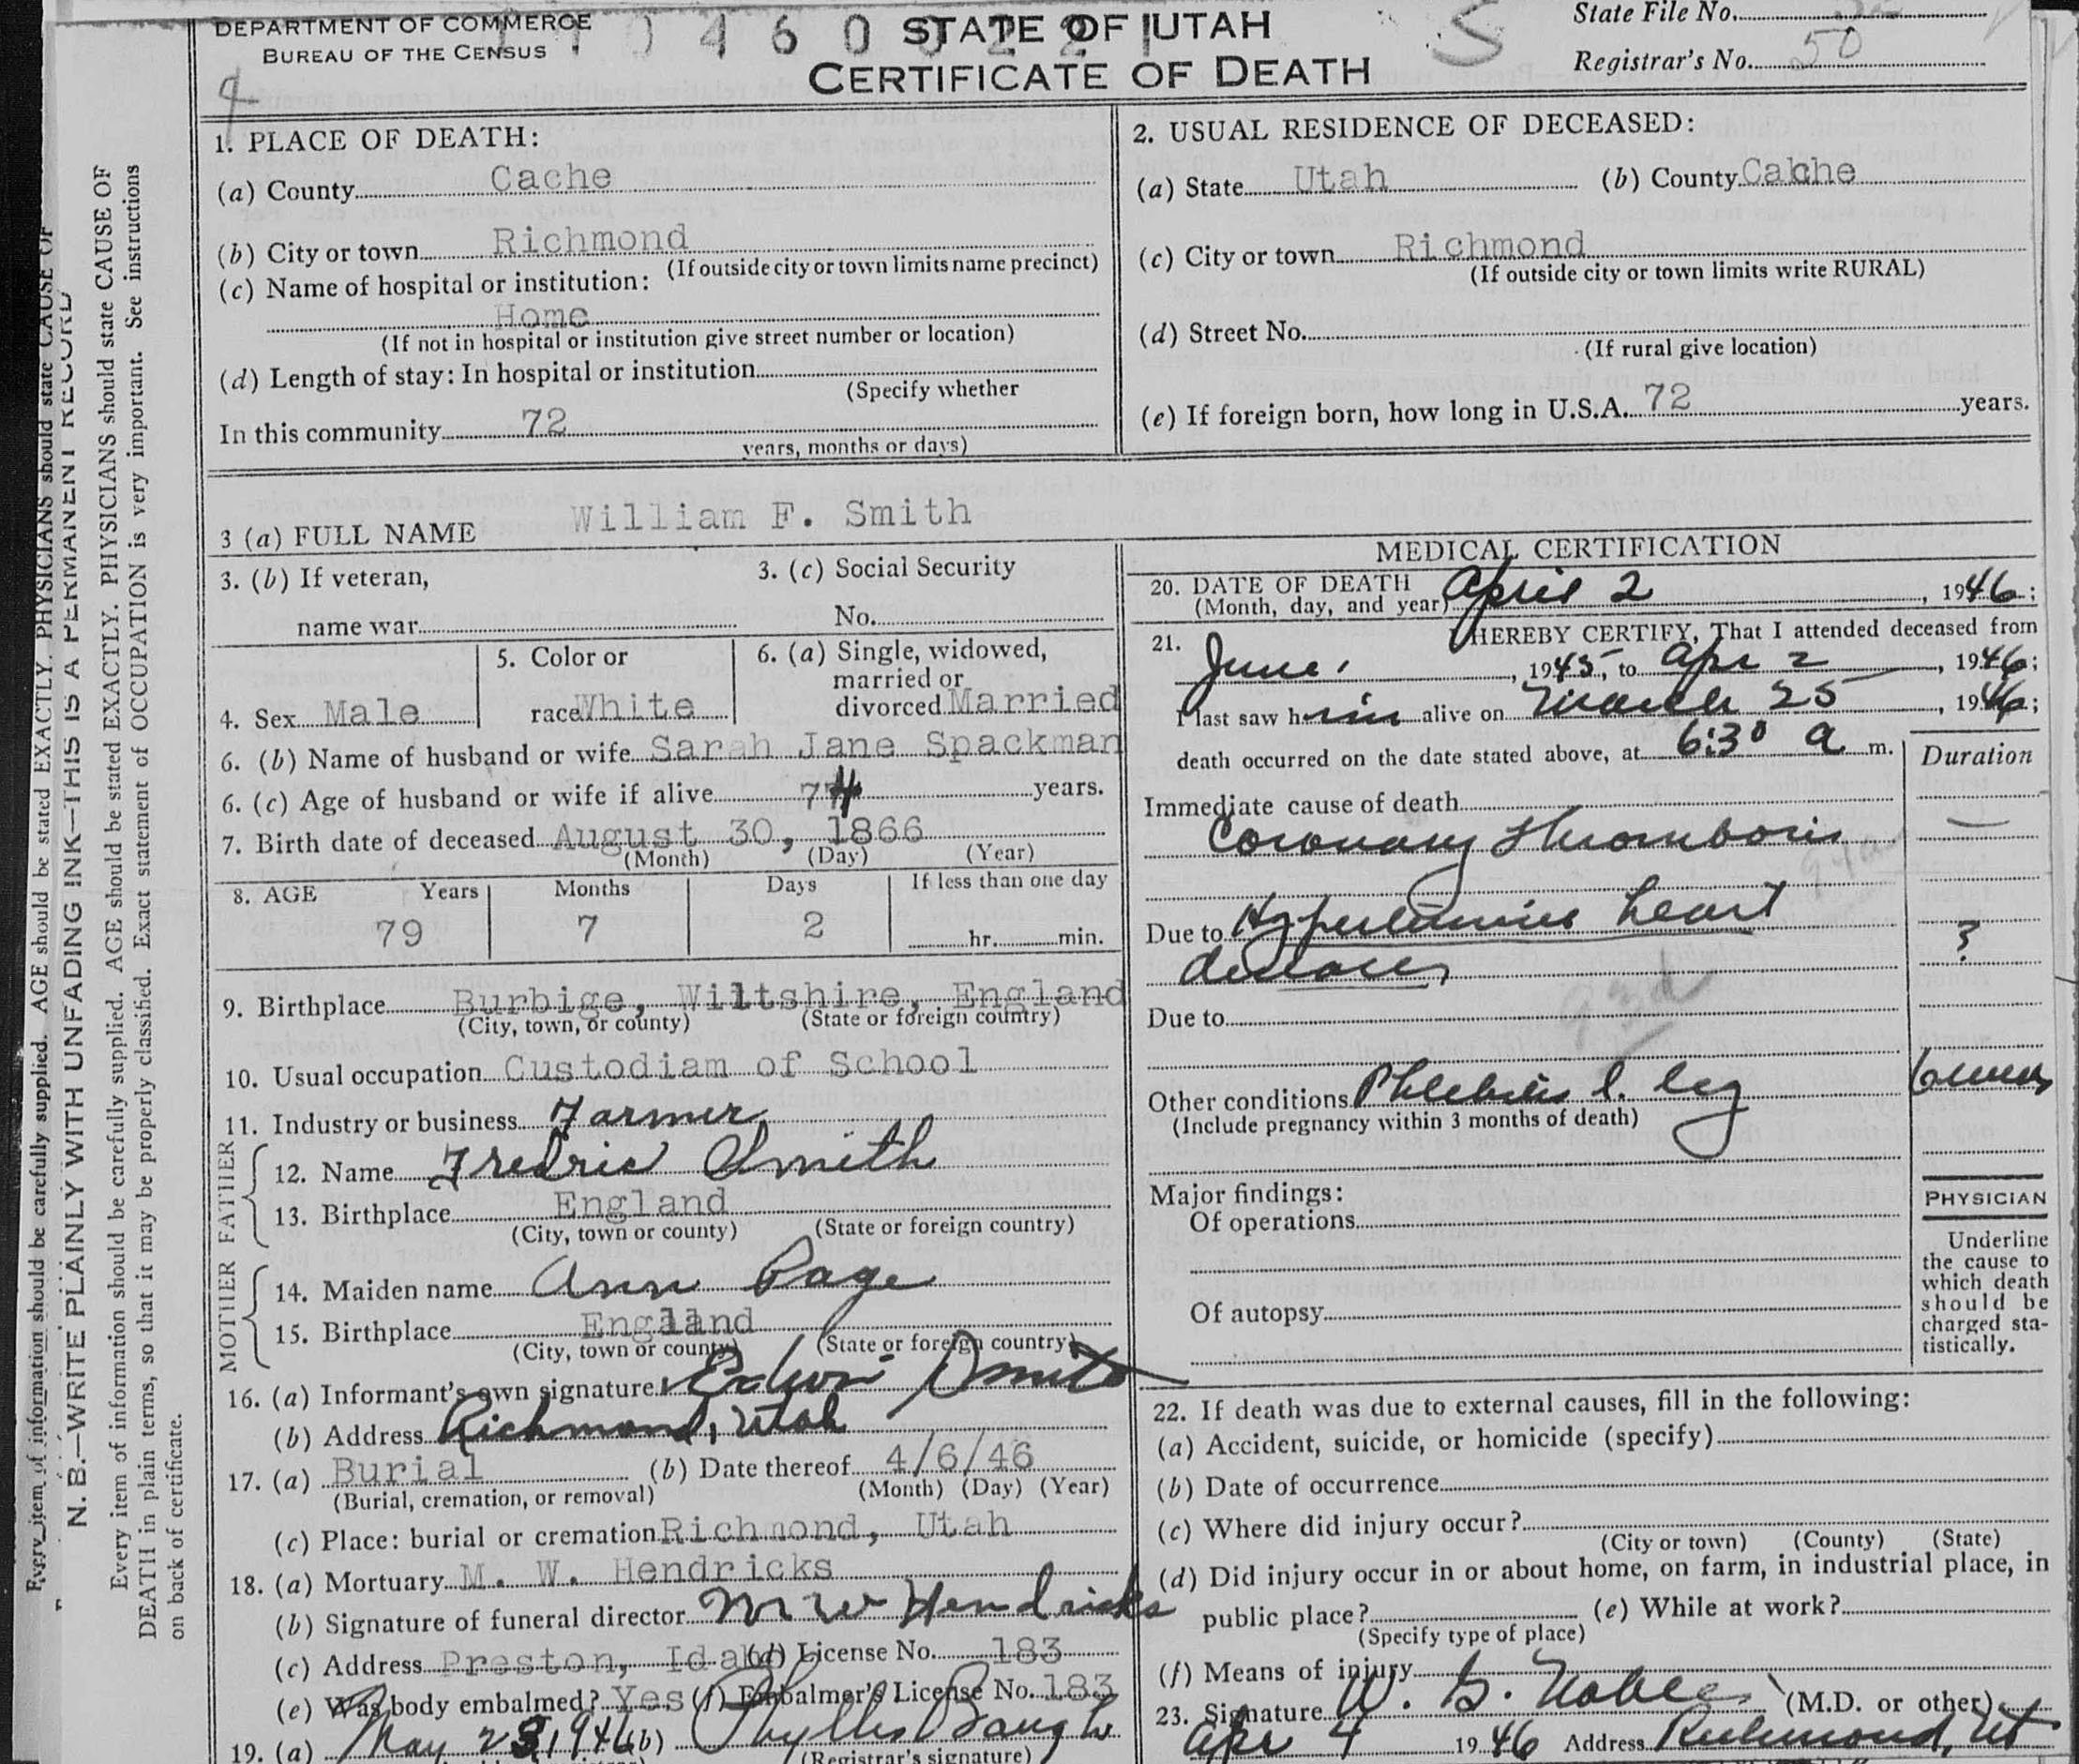 DEPARTMENT OF COMMERCE
BUREAU OF THE CENSUS
STATE OF UTAH
CERTIFICATE OF DEATH
State File No.
Registrar's No. 50
1. PLACE OF DEATH:
(a) County Cache
(b) City or town Richmond
(If outside city or town limits name precinct)
(c) Name of hospital or institution:
Home
(If not in hospital or institution give street number or location)
(d) Length of stay: In hospital or institution
(Specify whether
In this community 72
years, months or days)
2. USUAL RESIDENCE OF DECEASED:
(a) State Utah (b) County Cache
(c) City or town Richmond
(If outside city or town limits write RURAL)
(d) Street No.
(If rural give location)
(e) If foreign born, how long in U.S.A. 72 years.
3 (a) FULL NAME William F. Smith
3. (b) If veteran,
name war
3. (c) Social Security
No.
4. Sex Male
5. Color or
race White
6. (a) Single, widowed,
married or
divorced Married
6. (b) Name of husband or wife Sarah Jane Spackman
6. (c) Age of husband or wife if alive 74 years.
7. Birth date of deceased August 30, 1866
(Month) (Day) (Year)
8. AGE Years Months Days If less than one day
79 7 2 hr. min.
9. Birthplace Burbige, Wiltshire, England
(City, town, or county) (State or foreign country)
10. Usual occupation Custodiam of School
11. Industry or business Farmer
FATHER
12. Name Fredric Smith
13. Birthplace England
(City, town or county) (State or foreign country)
MOTHER
14. Maiden name Ann Page
15. Birthplace England
(City, town or county) (State or foreign country)
16. (a) Informant's own signature Edwin Smith
(b) Address Richmond, Utah
17. (a) Burial (b) Date thereof 4/6/46
(Burial, cremation, or removal) (Month) (Day) (Year)
(c) Place: burial or cremation Richmond, Utah
18. (a) Mortuary M. W. Hendricks
(b) Signature of funeral director M W Hendricks
(c) Address Preston, Idaho (d) License No. 183
(e) Was body embalmed? Yes (f) Embalmer's License No. 183
19. (a) May 23, 1946 (b) Phyllis Baugh
(Registrar's signature)
MEDICAL CERTIFICATION
20. DATE OF DEATH
(Month, day, and year) April 2, 1946;
21. I HEREBY CERTIFY, That I attended deceased from
June, 1945, to Apr 2, 1946;
I last saw him alive on March 25, 1946;
death occurred on the date stated above, at 6:30 a m.
Duration
Immediate cause of death
Coronary Thrombosis
Due to Hypertensive heart
disease ?
93d
Due to
Other conditions Phlebitis l. leg
(Include pregnancy within 3 months of death)
Major findings:
Of operations
Of autopsy
PHYSICIAN
Underline
the cause to
which death
should be
charged sta-
tistically.
22. If death was due to external causes, fill in the following:
(a) Accident, suicide, or homicide (specify)
(b) Date of occurrence
(c) Where did injury occur?
(City or town) (County) (State)
(d) Did injury occur in or about home, on farm, in industrial place, in
public place? (e) While at work?
(Specify type of place)
(f) Means of injury
23. Signature (M.D. or other)
Apr 4 1946 Address Richmond, Ut
N. B.—WRITE PLAINLY WITH UNFADING INK—THIS IS A PERMANENT RECORD
Every item of information should be carefully supplied. AGE should be stated EXACTLY. PHYSICIANS should state CAUSE OF
DEATH in plain terms, so that it may be properly classified. Exact statement of OCCUPATION is very important. See instructions
on back of certificate.
Every item of information should be carefully supplied. AGE should be stated EXACTLY. PHYSICIANS should state CAUSE OF